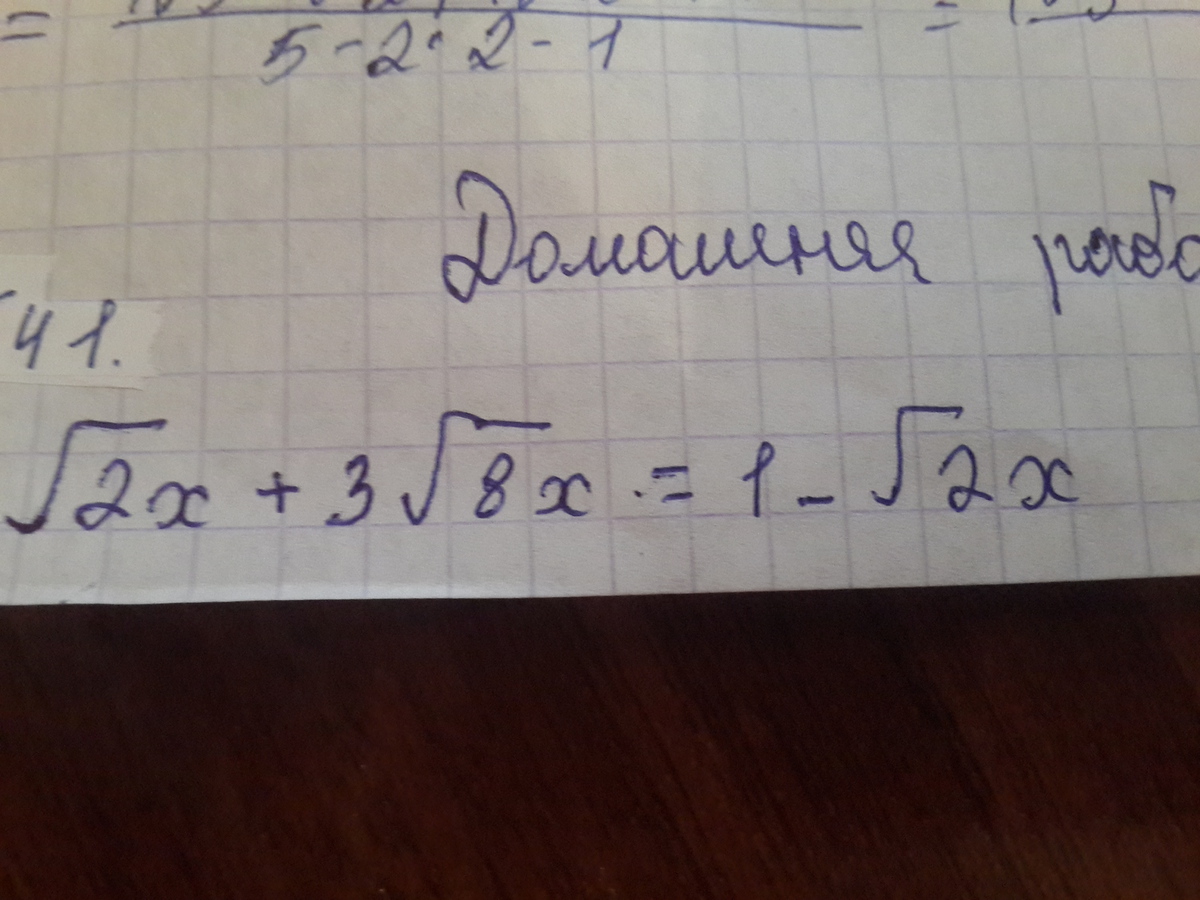 =
5 - 2 · 2 - 1
Домашняя
41.
√2x + 3√8x = 1 - √2x